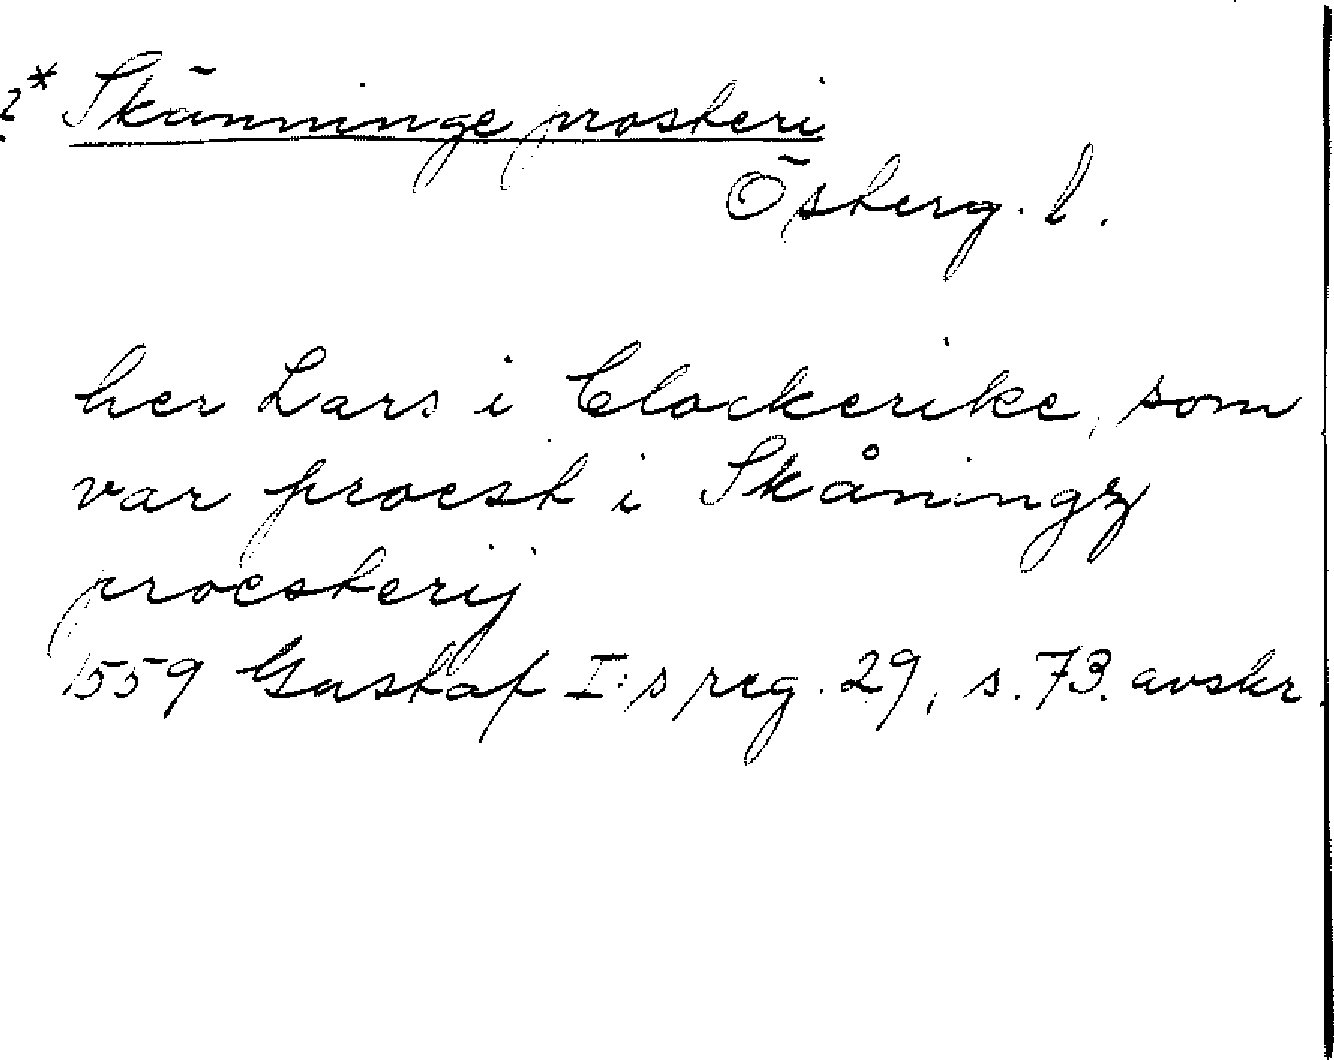 2* Skänninge prosteri
Österg. l.
her Lars i Clockerike, som
var proest i Skåningz
proesterij
1559 Gustaf I:s reg. 29, s. 73. avskr.